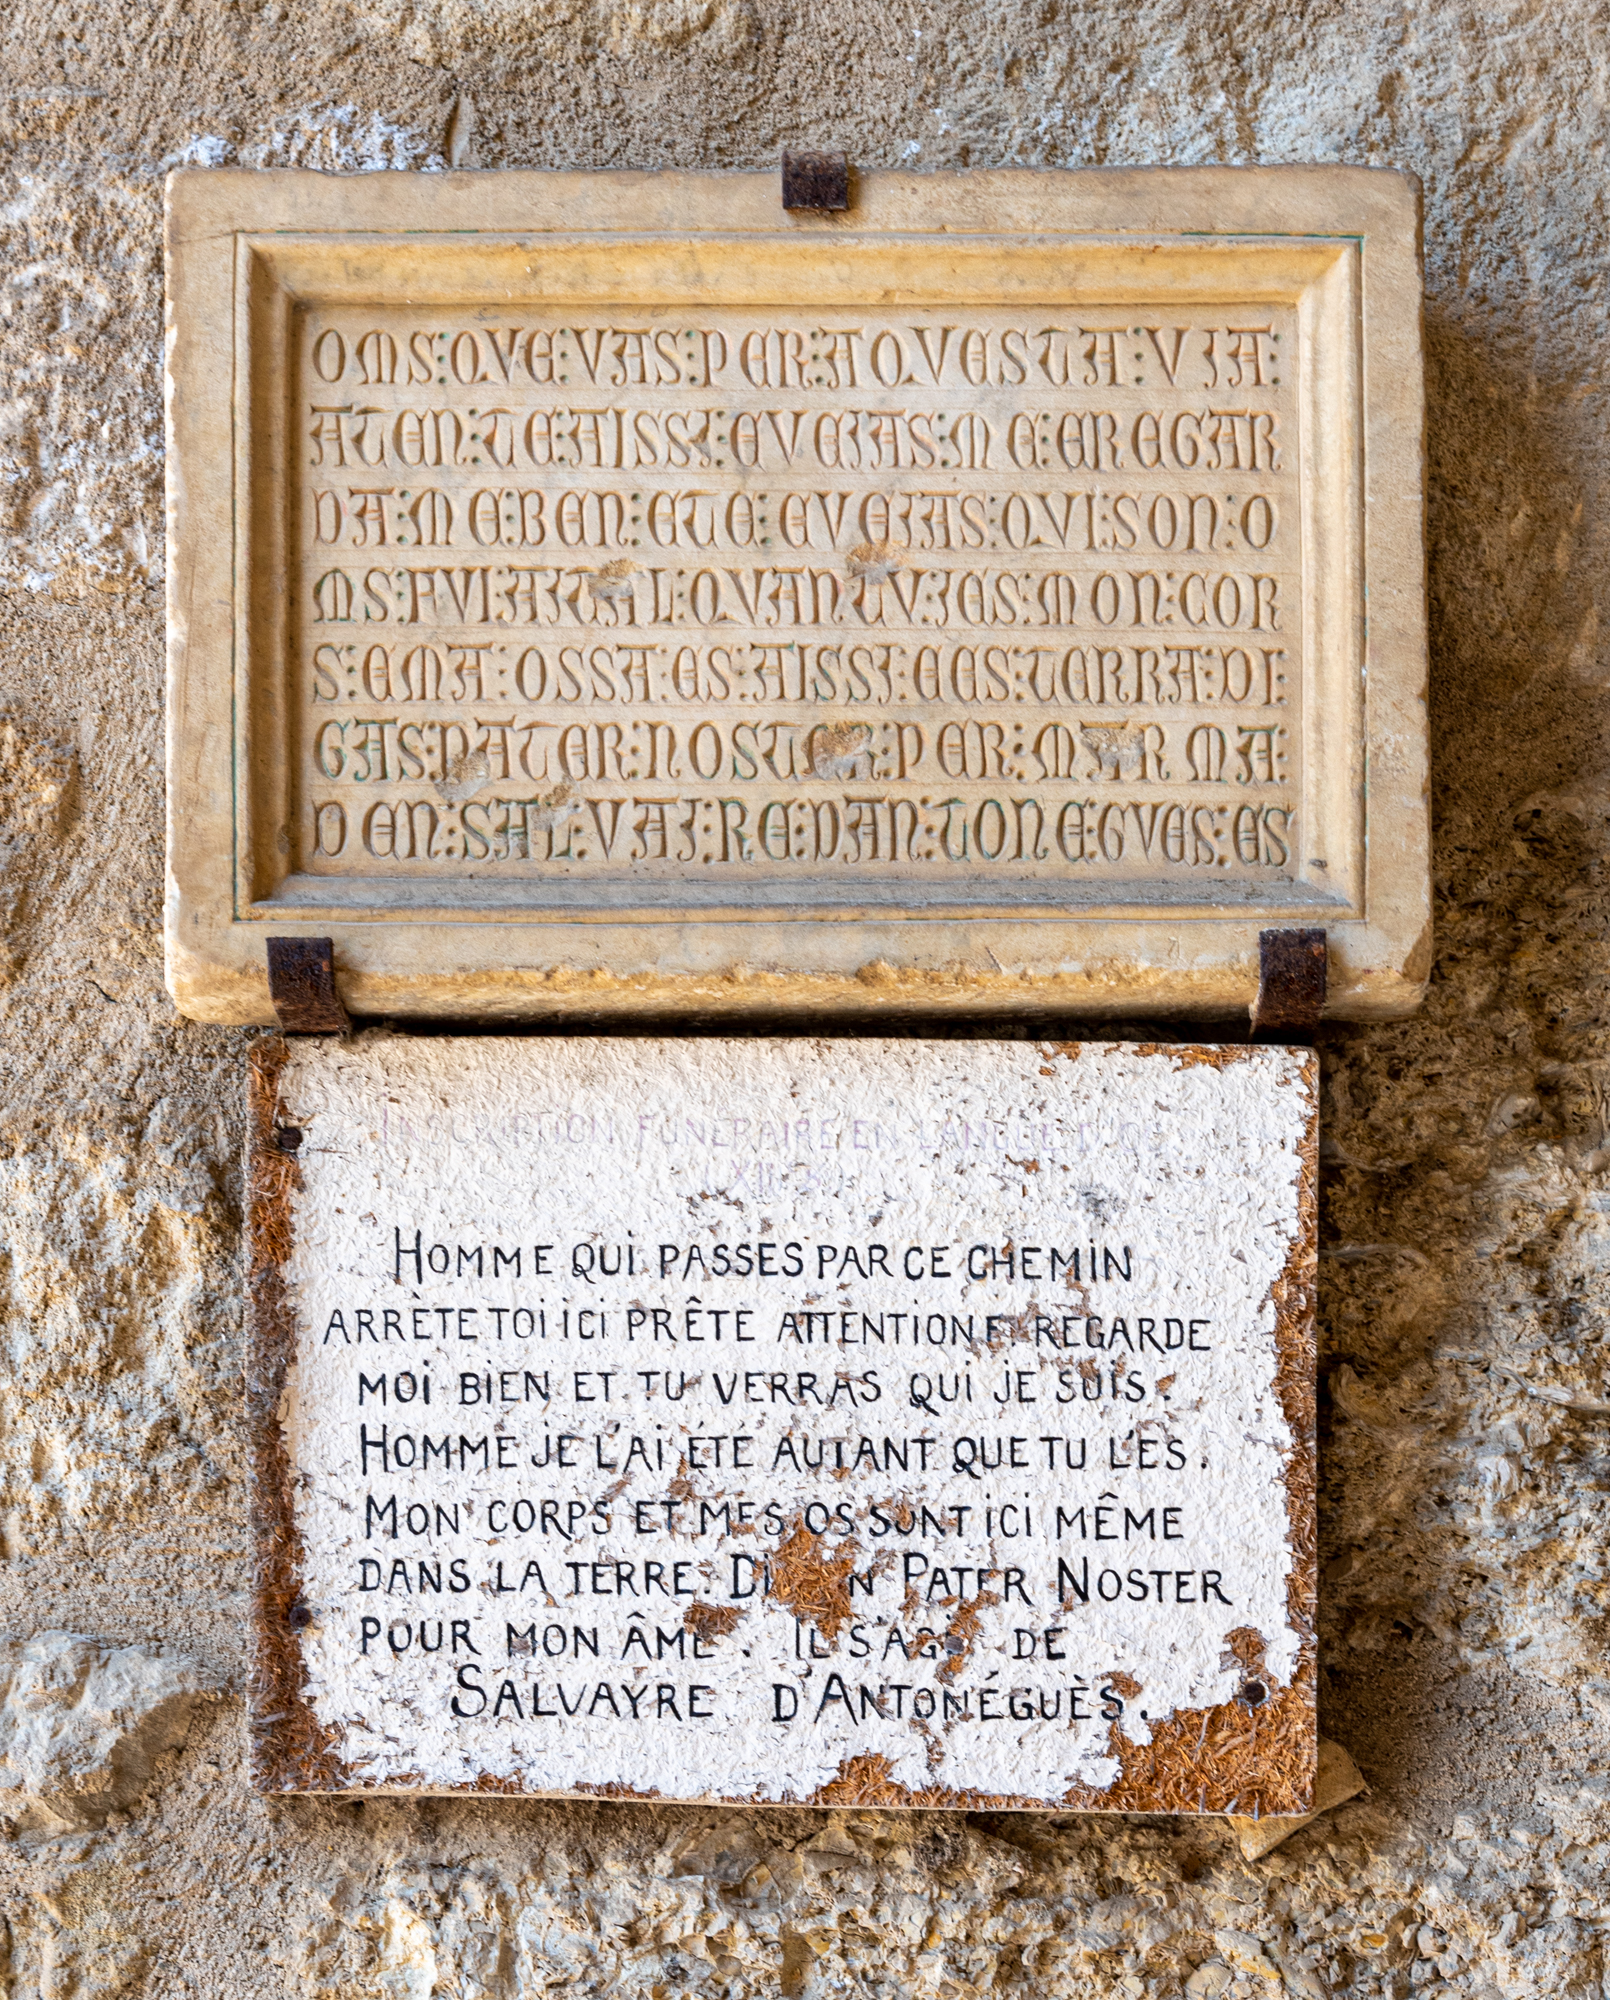 OMS:QVE:VAS:PER:AQVESTA:VIA:
ATEN:TE:AISSI:EVEIAS:ME:EREGAR
DA:ME:BEN:ETE:EVEIAS:QVI:SON:O
MS:FVI:AITAL:QVAN:TV:IES:MON:COR
S:EMA:OSSA:ES:AISSI:EES:TERRA:DI:
GAS:PATER:NOSTER:PER:M'ARMA:
DEN:SALVAIRE:DAN:TONEGVES:ES
INSCRIPTION FUNERAIRE EN LANGUE D'OC
HOMME QUI PASSES PAR CE CHEMIN
ARRÈTE TOI ICI PRÊTE ATTENTION ET REGARDE
MOI BIEN ET TU VERRAS QUI JE SUIS.
HOMME JE L'AI ÉTÉ AUTANT QUE TU L'ES.
MON CORPS ET MES OS SONT ICI MÊME
DANS LA TERRE. PATER NOSTER
POUR MON ÂME. IL S'AGIT DE
SALVAYRE D'ANTONÉGUÈS.